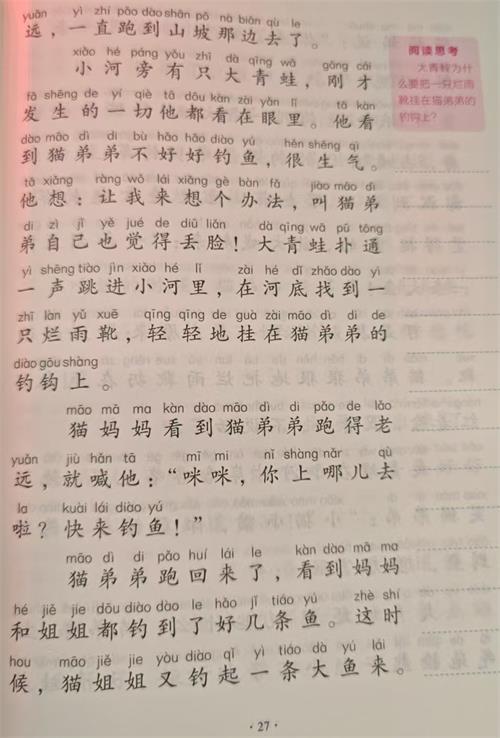 yuǎn yì zhí pǎo dào shān pō nà biān qù le
远，一直跑到山坡那边去了。
xiǎo hé páng yǒu zhī dà qīng wā gāng cái
小河旁有只大青蛙，刚才
fā shēng de yí qiè tā dōu kàn zài yǎn lǐ tā kàn
发生的一切他都看在眼里。他看
dào māo dì di bù hǎo hǎo diào yú hěn shēng qì
到猫弟弟不好好钓鱼，很生气。
tā xiǎng ràng wǒ lái xiǎng gè bàn fǎ jiào māo dì
他想：让我来想个办法，叫猫弟
di zì jǐ yě jué de diū liǎn dà qīng wā pū tōng
弟自己也觉得丢脸！大青蛙扑通
yì shēng tiào jìn xiǎo hé lǐ zài hé dǐ zhǎo dào yì
一声跳进小河里，在河底找到一
zhī làn yǔ xuē qīng qīng de guà zài māo dì di de
只烂雨靴，轻轻地挂在猫弟弟的
diào gōu shàng
钓钩上。
māo mā ma kàn dào māo dì di pǎo de lǎo
猫妈妈看到猫弟弟跑得老
yuǎn jiù hǎn tā mī mi nǐ shàng nǎr qù
远，就喊他：“咪咪，你上哪儿去
la kuài lái diào yú
啦？快来钓鱼！”
māo dì di pǎo huí lái le kàn dào mā ma
猫弟弟跑回来了，看到妈妈
hé jiě jie dōu diào dào le hǎo jǐ tiáo yú zhè shí
和姐姐都钓到了好几条鱼。这时
hou māo jiě jie yòu diào qǐ yì tiáo dà yú lái
候，猫姐姐又钓起一条大鱼来。
阅读思考
大青蛙为什
么要把一只烂雨
靴挂在猫弟弟的
钓钩上？
·27·